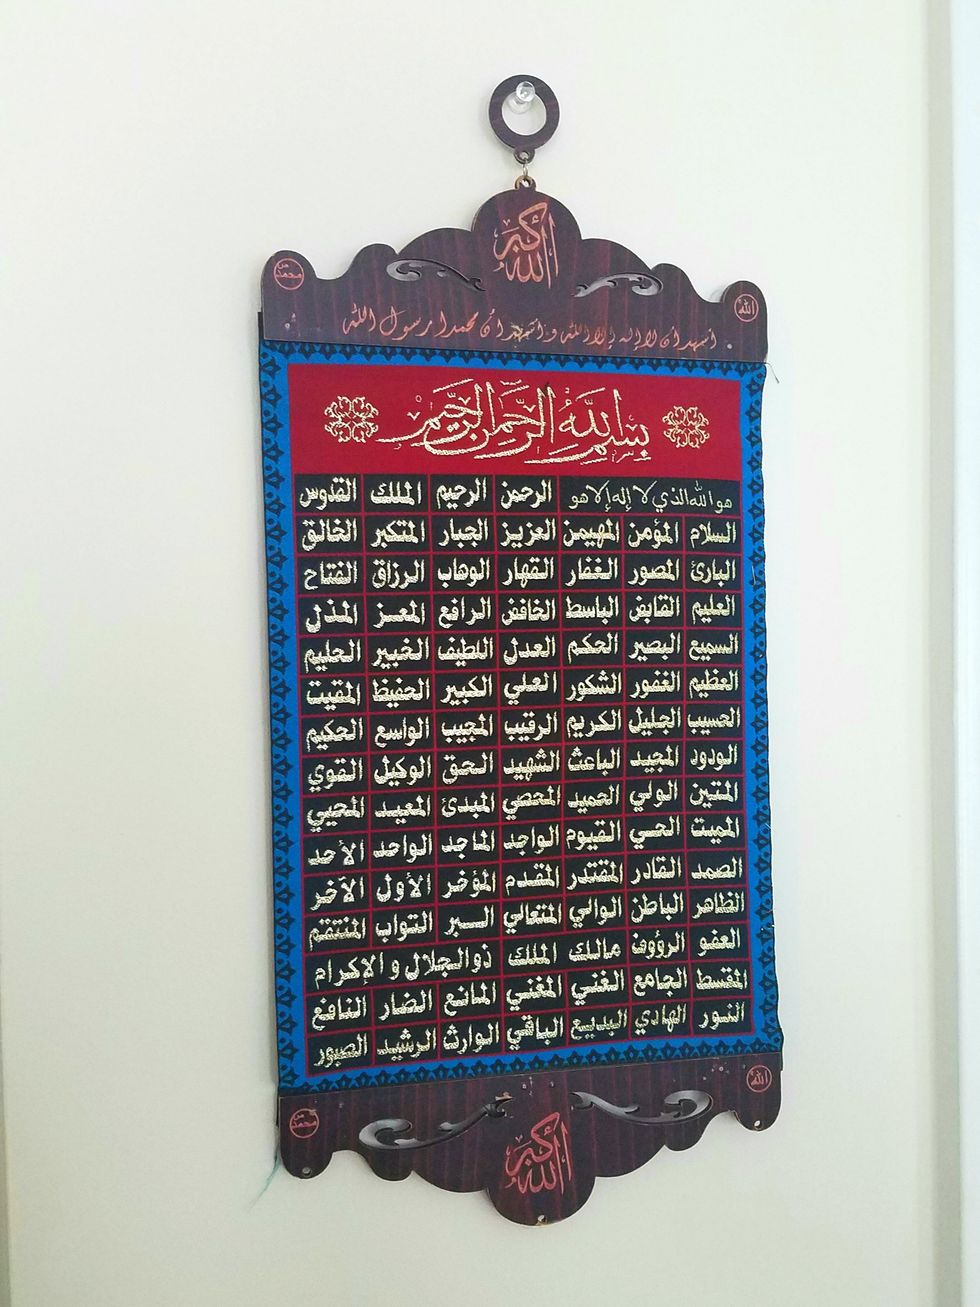 الله أكبر
محمد ص
الله
أشهد أن لا إله إلا الله وأشهد أن محمدا رسول الله
بسم الله الرحمن الرحيم
هو الله الذي لا إله إلا هو الرحمن الرحيم الملك القدوس
السلام المؤمن المهيمن العزيز الجبار المتكبر الخالق
البارئ المصور الغفار القهار الوهاب الرزاق الفتاح
العليم القابض الباسط الخافض الرافع المعز المذل
السميع البصير الحكم العدل اللطيف الخبير الحليم
العظيم الغفور الشكور العلي الكبير الحفيظ المقيت
الحسيب الجليل الكريم الرقيب المجيب الواسع الحكيم
الودود المجيد الباعث الشهيد الحق الوكيل القوي
المتين الولي الحميد المحصي المبدئ المعيد المحيي
المميت الحي القيوم الواجد الماجد الواحد الأحد
الصمد القادر المقتدر المقدم المؤخر الأول الآخر
الظاهر الباطن الوالي المتعالي البر التواب المنتقم
العفو الرؤوف مالك الملك ذو الجلال و الإكرام
المقسط الجامع الغني المغني المانع الضار النافع
النور الهادي البديع الباقي الوارث الرشيد الصبور
الله
محمد ص
الله أكبر